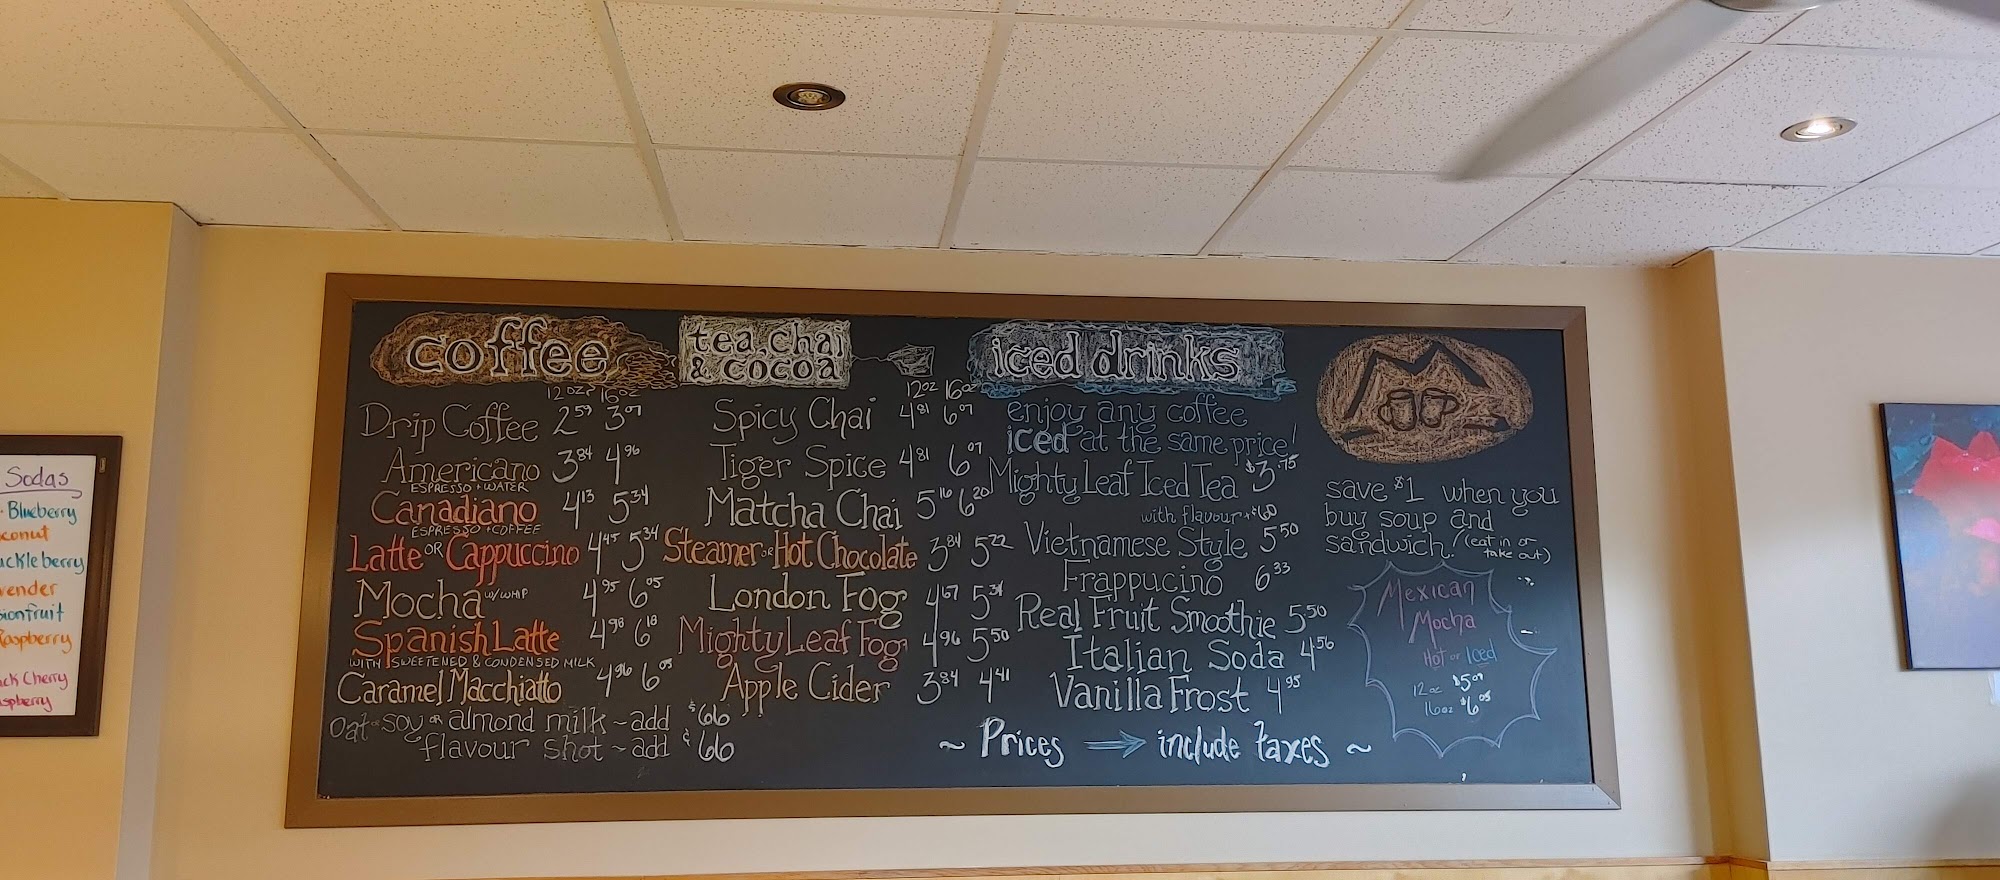 Sodas
Blueberry
conut
uckleberry
vender
sionfruit
Raspberry
ck Cherry
spberry
coffee
12oz 16oz
Drip Coffee 2.59 3.07
Americano 3.84 4.96
ESPRESSO + WATER
Canadiano 4.13 5.34
ESPRESSO + COFFEE
Latte OR Cappuccino 4.45 5.34
Mocha w/WHIP 4.95 6.05
Spanish Latte 4.98 6.18
WITH SWEETENED & CONDENSED MILK
Caramel Macchiatto 4.96 6.05
oat or soy or almond milk ~ add $.66
flavour shot ~ add .66
tea, chai
& cocoa
12oz 16oz
Spicy Chai 4.81 6.07
Tiger Spice 4.81 6.07
Matcha Chai 5.16 6.20
Steamer or Hot Chocolate 3.84 5.22
London Fog 4.67 5.34
Mighty Leaf Fog 4.96 5.50
Apple Cider 3.84 4.41
iced drinks
enjoy any coffee
iced at the same price!
Mighty Leaf Iced Tea $3.75
with flavour + $.60
Vietnamese Style 5.50
Frappucino 6.33
Real Fruit Smoothie 5.50
Italian Soda 4.56
Vanilla Frost 4.95
~ Prices → include taxes ~
save $1 when you
buy soup and
sandwich! (eat in or
take out)
Mexican
Mocha
Hot or Iced
12oz $5.09
16oz $6.05